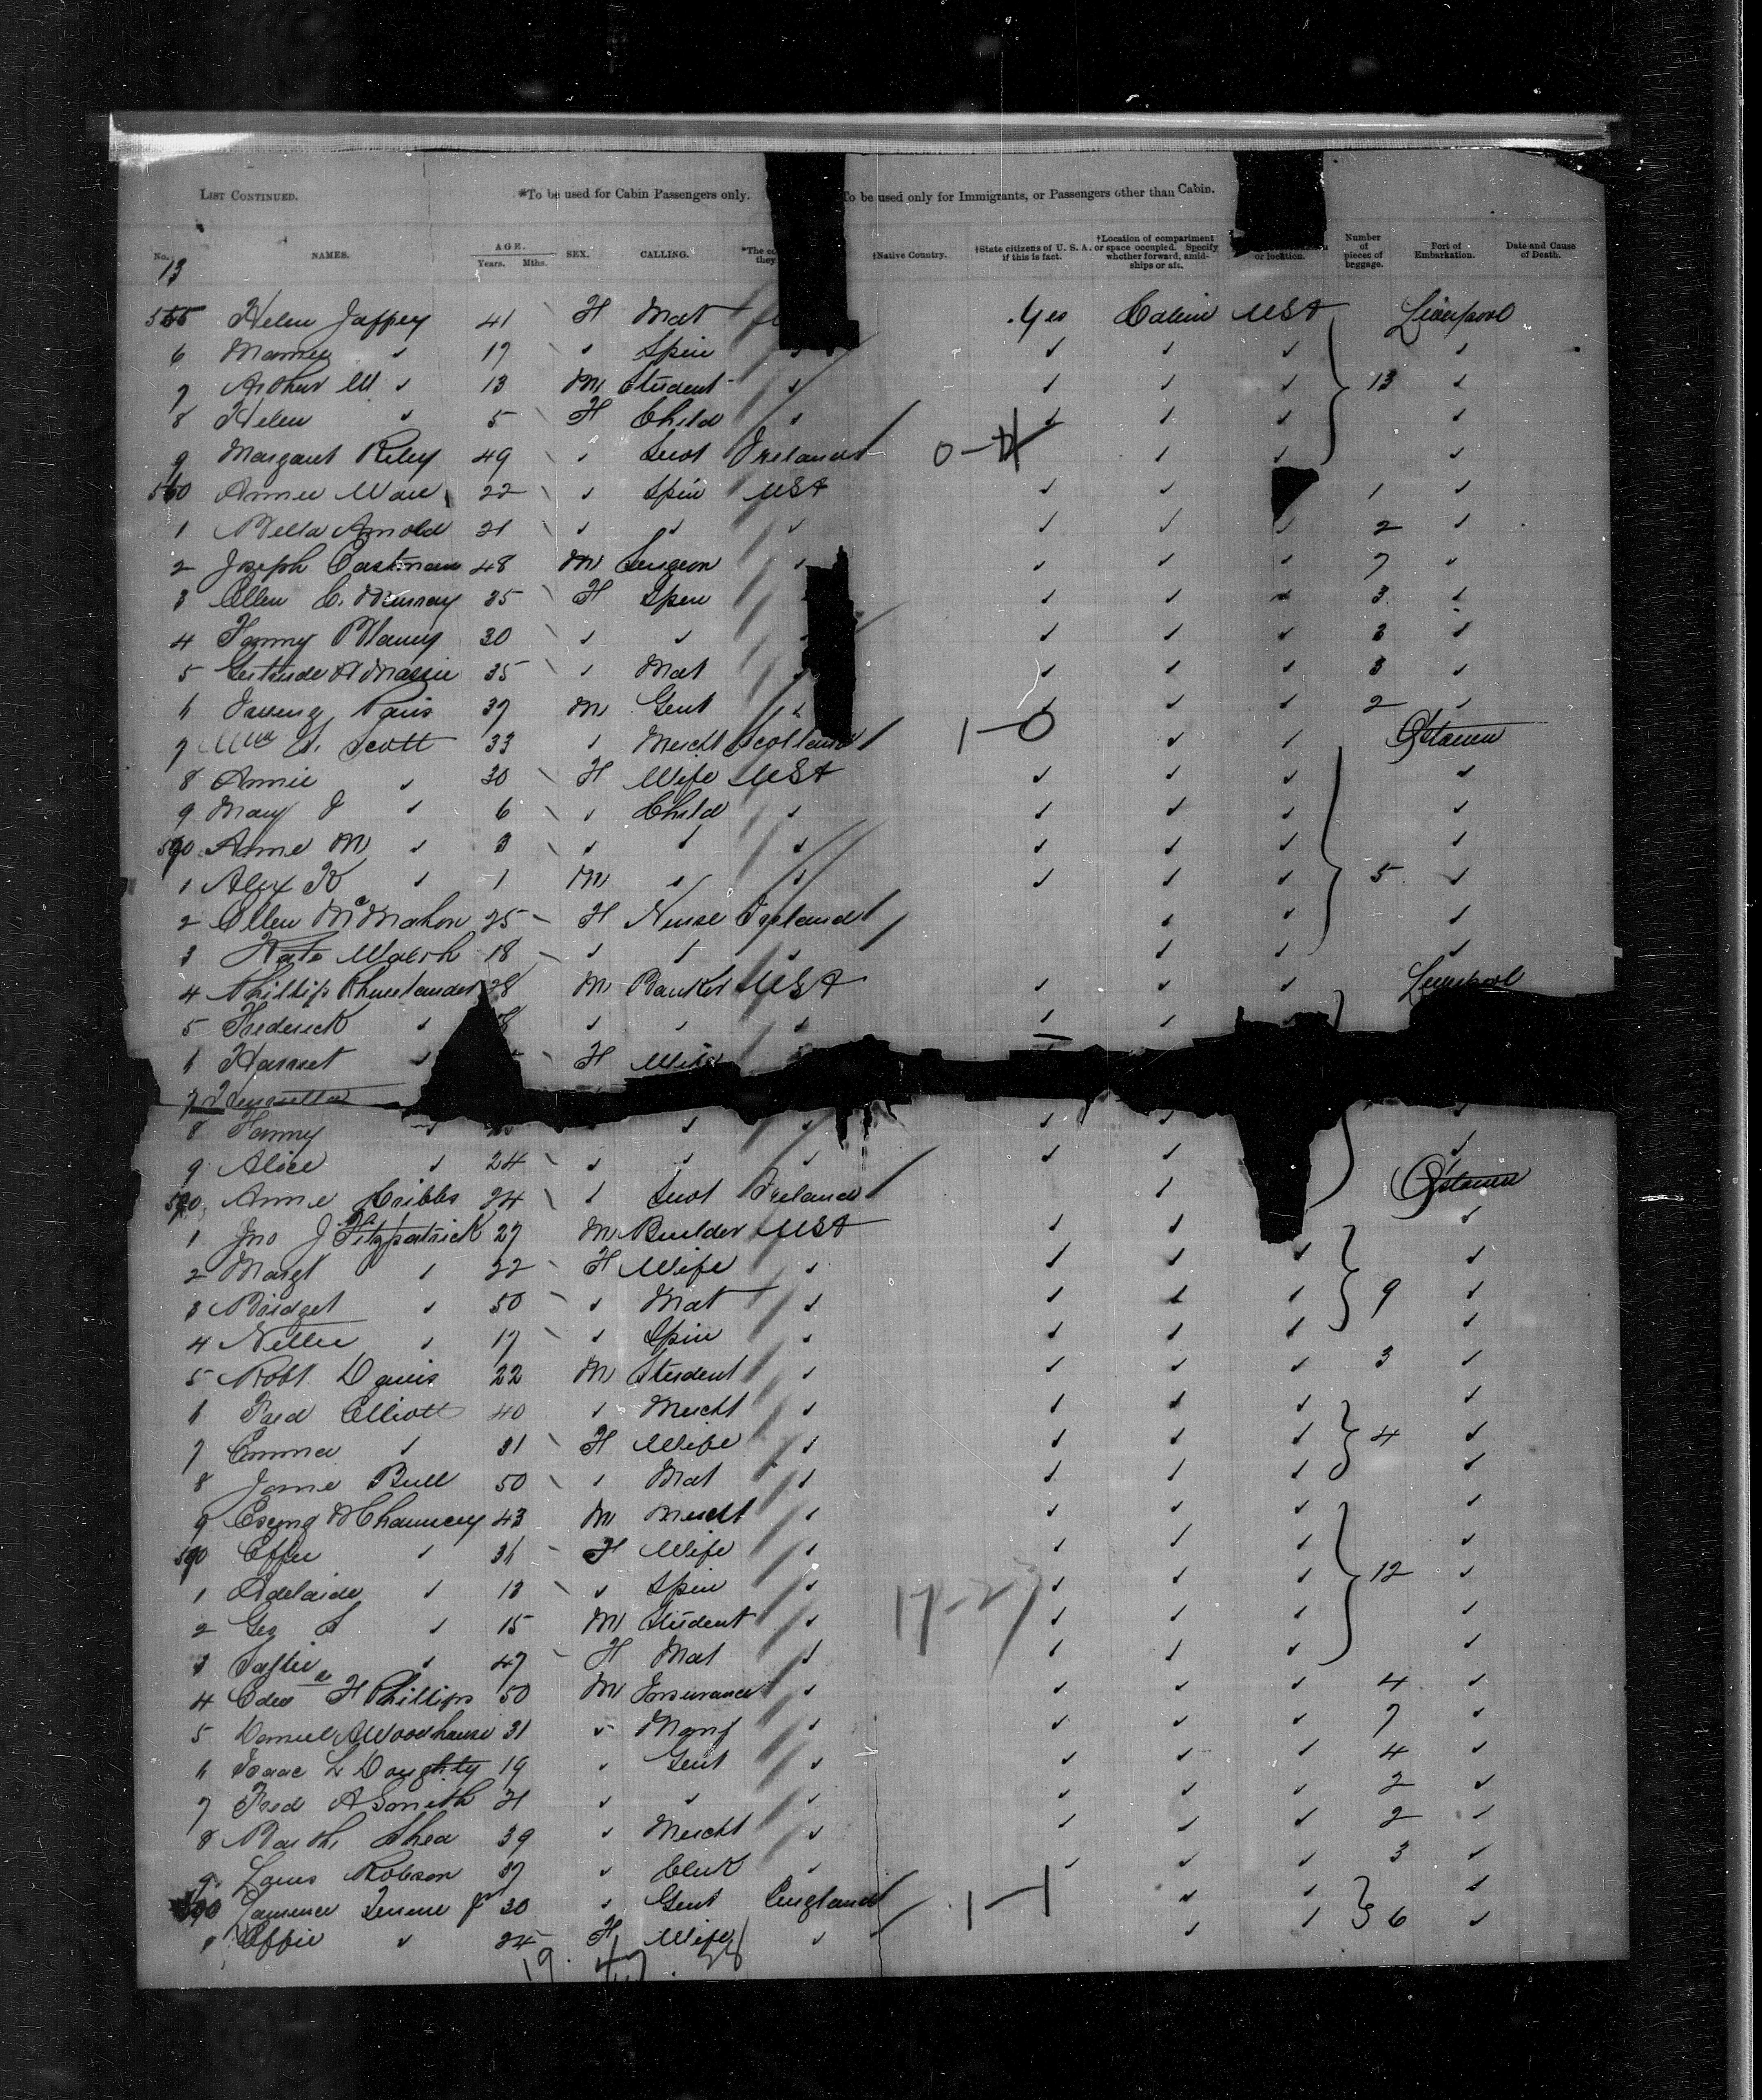 LIST CONTINUED. *To be used for Cabin Passengers only. To be used only for Immigrants, or Passengers other than Cabin.
No. NAMES. AGE. Years. Mths. SEX. CALLING. *The co they †Native Country. †State citizens of U. S. A. if this is fact. †Location of compartment or space occupied. Specify whether forward, amidships or aft. or location. Number of pieces of baggage. Port of Embarkation. Date and Cause of Death.
13
555 Helen Jaffrey 41 F Mat Yes Cabin USA Liverpool
6 ✓ 17 ✓ Spin ✓ ✓ ✓ ✓ ✓
7 Arthur W ✓ 13 M Student ✓ ✓ ✓ ✓ 13 ✓
8 Helen ✓ 5 F Child ✓ ✓ ✓ ✓ ✓
9 Margaret Riley 49 ✓ Svot Ireland 0-1 ✓ ✓ ✓
560 Annie Ware 22 ✓ Spin USA ✓ ✓ 1 ✓
1 Bella Arnold 21 ✓ ✓ ✓ ✓ ✓ ✓ 2 ✓
2 Joseph Eastman 48 M Surgeon ✓ ✓ ✓ ✓ 7 ✓
3 Ellen C. Murray 35 F Spin ✓ ✓ ✓ 3 ✓
4 Fanny 30 ✓ ✓ ✓ ✓ ✓ 3 ✓
5 Gertrude A Massie 35 ✓ Mat ✓ ✓ ✓ 3 ✓
6 Paris 37 M Gent ✓ ✓ ✓ ✓ 2 ✓
7 Wm S. Scott 33 ✓ Mercht Scotland 1-0 ✓ ✓ Qstown
8 Annie ✓ 30 F Wife USA ✓ ✓ ✓ ✓
9 Mary J ✓ 6 ✓ Child ✓ ✓ ✓ ✓ ✓
570 Anne M ✓ 3 ✓ ✓ ✓ ✓ ✓ ✓ ✓
1 Alex K ✓ 1 M ✓ ✓ ✓ ✓ ✓ 5 ✓
2 Ellen McMahon 25 F Nurse Ireland ✓ ✓ ✓
3 Kate Walsh 18 ✓ ✓ ✓ ✓ ✓ ✓
4 Phillip Rhinelander 28 M Banker USA ✓ ✓ ✓ Liverpool
5 Frederick ✓ 8 ✓ ✓ ✓ ✓ ✓
6 Harriet ✓ F Wife
7
8 Fanny ✓ ✓ ✓ ✓ ✓ ✓
9 Alice ✓ 24 ✓ ✓ ✓ ✓ ✓ ✓
580 Annie Cribbs 24 ✓ Svot Ireland ✓ Qstown
1 Jno J Fitzpatrick 27 M Builder USA ✓ ✓ ✓
2 Margt ✓ 22 F Wife ✓ ✓ ✓ ✓ ✓
3 Bridget ✓ 50 ✓ Mat ✓ ✓ ✓ ✓ 9 ✓
4 Nellie ✓ 17 ✓ Spin ✓ ✓ ✓ ✓ ✓
5 Robt Davis 22 M Student ✓ ✓ ✓ ✓ 3 ✓
6 Fred Elliott 40 ✓ Mercht ✓ ✓ ✓ ✓ ✓
7 Emma ✓ 31 F Wife ✓ ✓ ✓ ✓ 4 ✓
8 Jane Bull 50 ✓ Mat ✓ ✓ ✓ ✓ ✓
9 Chauncey 43 M Mercht ✓ ✓ ✓ ✓ ✓
590 Effie ✓ 36 F Wife ✓ ✓ ✓ ✓ ✓
1 Adelaide ✓ 13 ✓ Spin ✓ 17-27 ✓ ✓ ✓ 12 ✓
2 Geo S ✓ 15 M Student ✓ ✓ ✓ ✓ ✓
3 Sallie ✓ 47 F Mat ✓ ✓ ✓ ✓ ✓
4 H Phillips 50 M Insurance ✓ ✓ ✓ ✓ 4 ✓
5 Daniel A Woodhouse 31 ✓ Manf ✓ ✓ ✓ ✓ 7 ✓
6 Isaac L Doughty 19 ✓ Gent ✓ ✓ ✓ ✓ 4 ✓
7 Fred A Smith 21 ✓ ✓ ✓ ✓ ✓ ✓ 2 ✓
8 Barth Shea 39 ✓ Mercht ✓ ✓ ✓ ✓ 2 ✓
9 Louis Robson 37 ✓ Clerk ✓ ✓ ✓ ✓ 3 ✓
Laurence Jr 30 ✓ Gent England 1-1 ✓ ✓ ✓
1 Effie ✓ 25 F Wife ✓ ✓ ✓ 6 ✓
19. 47. 38